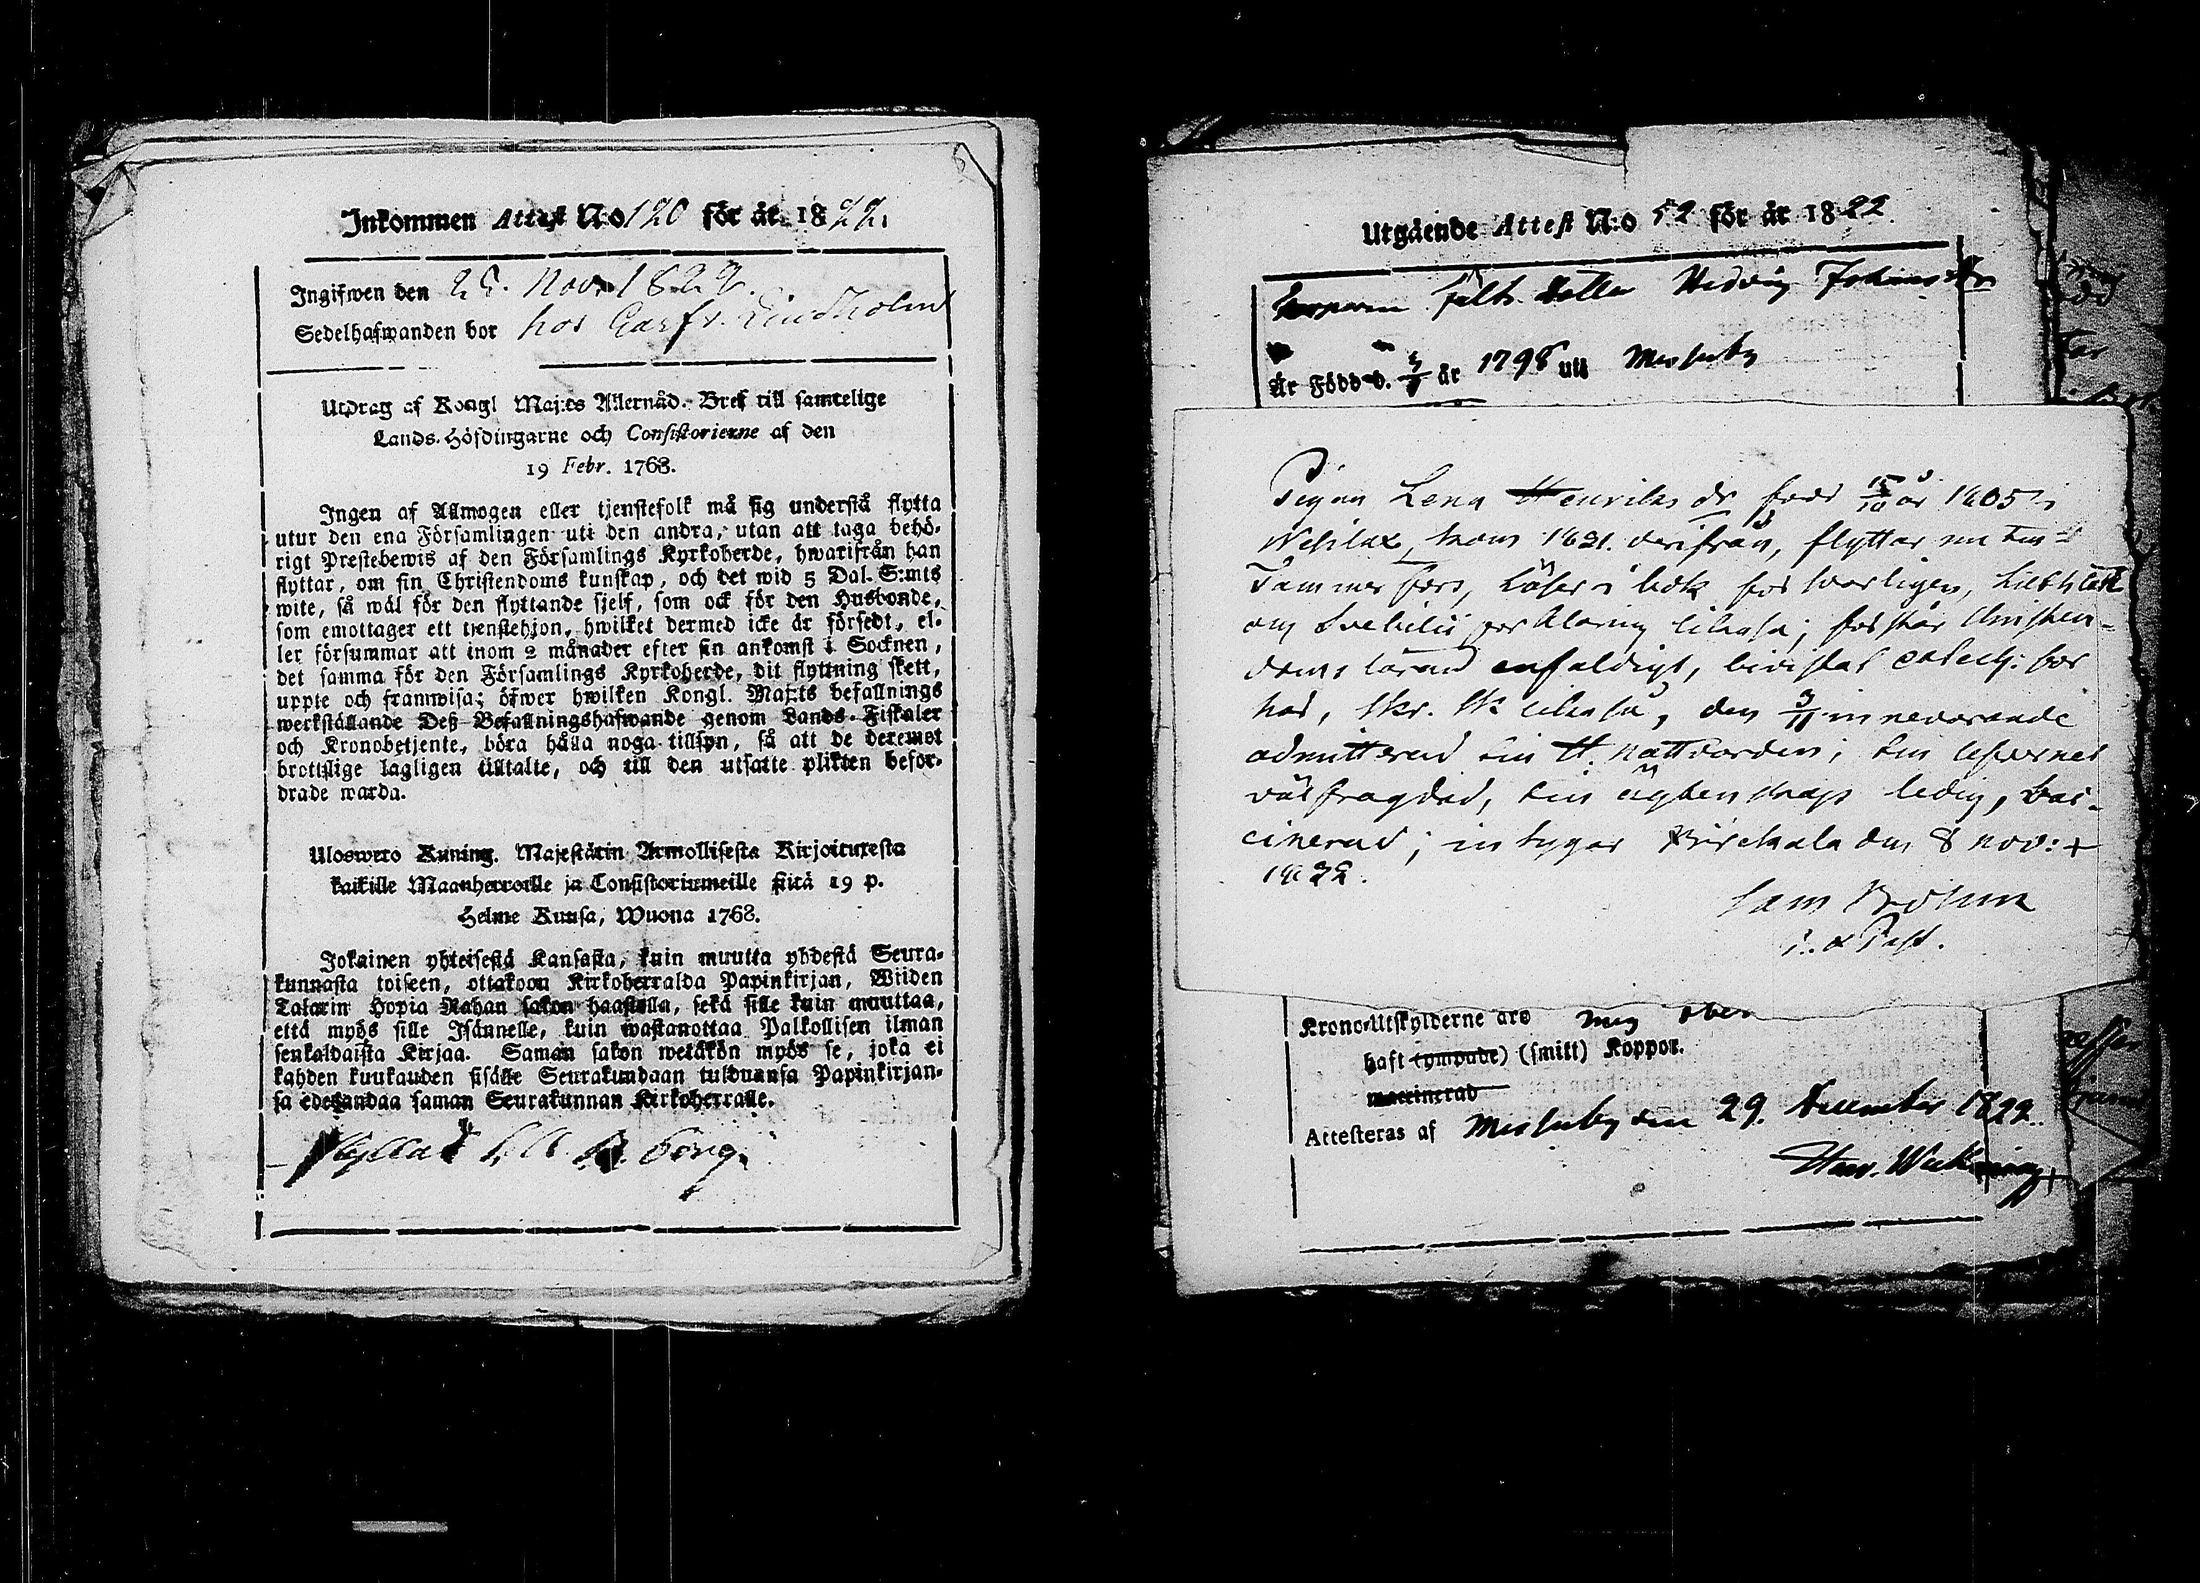 Inkommen Attest N:o 120 för år 1822.
Ingifwen den 25. Nov. 1822.
Sedelhafwanden bor hos Garfv. Lindholm
Utdrag af Kongl Maj:ts Allernåd. Bref till samtelige
Lands-Höfdingarne och Consistorierne af den
19 Febr. 1768.
Ingen af Allmogen eller tjenstefolk må sig understå flytta
utur den ena Församlingen uti den andra, utan att taga behö-
rigt Prestebewis af den Församlings Kyrkoherde, hwarifrån han
flyttar, om sin Christendoms kunskap, och det wid 5 Dal. S:mts
wite, så wäl för den flyttande sjelf, som ock för den Husbonde,
som emottager ett tjenstehjon, hwilket dermed icke är försedt, el-
ler försummar att inom 2 månader efter sin ankomst i Socknen,
det samma för den Församlings Kyrkoherde, dit flyttning skett,
uppte och framwisa; öfwer hwilken Kongl. Maj:ts befallnings
werkställande Deß Befallningshafwande genom Lands-Fiskaler
och Kronobetjente, böra hålla noga tillsyn, så att de deremot
brottslige lagligen tilltalte, och till den utsatte plikten befor-
drade warda.
Uloswero Kuning. Majestätin Armollisesta Kirjoituxesta
kaikille Maanherroille ja Consistoriumeille siitä 19 p.
Helme Kuusa, Wuona 1768.
Jokainen yhteisestä Kansasta, kuin muutta yhdestä Seura-
kunnasta toiseen, ottakoon Kirkoherralda Papinkirjan, Wiiden
Talarin Hopia Rahan sakon haastolla, sekä sille kuin muuttaa,
että myös sille Isännelle, kuin wastanottaa Palkollisen ilman
senkaldaista Kirjaa. Saman sakon wetäkön myös se, joka ei
kahden kuukauden sisälle Seurakundaan tulduansa Papinkirjan-
sa edesandaa saman Seurakunnan Kirkoherralle.
Utgående Attest N:o 52 för år 1822
Hedvig Johansdr
Är Född d. år 1798 uti Messuby
Pigan Lena Henriksdr född 15/10 år 1805 i
Wesilax, kom 1821. derifrån, flyttar nu till
Tammerfors, läser i bok försvarligen, Luth Cat.
og Svebilii förklaring likaså; förstår Christen-
doms läran enfaldigt, bivistat catech: för
hör, skr. sk likaså, den 3/11 innevarande
admitterad till H. nattvarden; till lefvernet
välfrägdad, till ägtenskap ledig, vac-
cinerad; intygar Birckala den 8 nov:
1822.
Sam
Krono-Utskylderne äro
haft (ympade) (smitt) Koppor.
vaccinerad
Attesteras af Messuby den 29. December 1822.